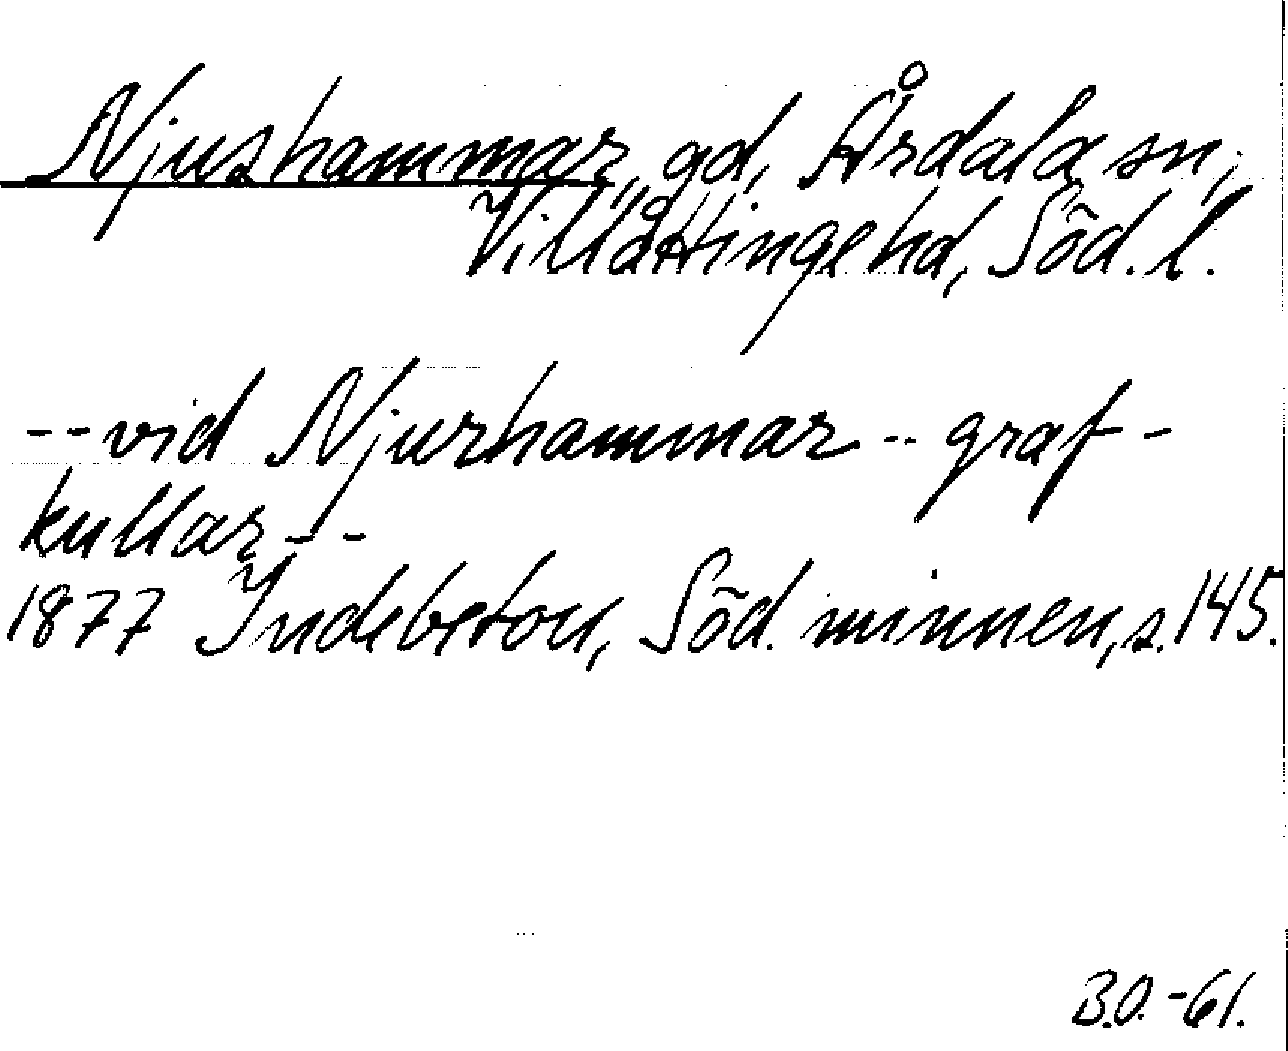 Njushammar, gd, Årdala sn,
Villåttinge hd, Söd. l.
-- vid Njurhammar -- graf-
kullar --
1877 Indebetou, Söd. minnen, s. 145.
B.O. -61.